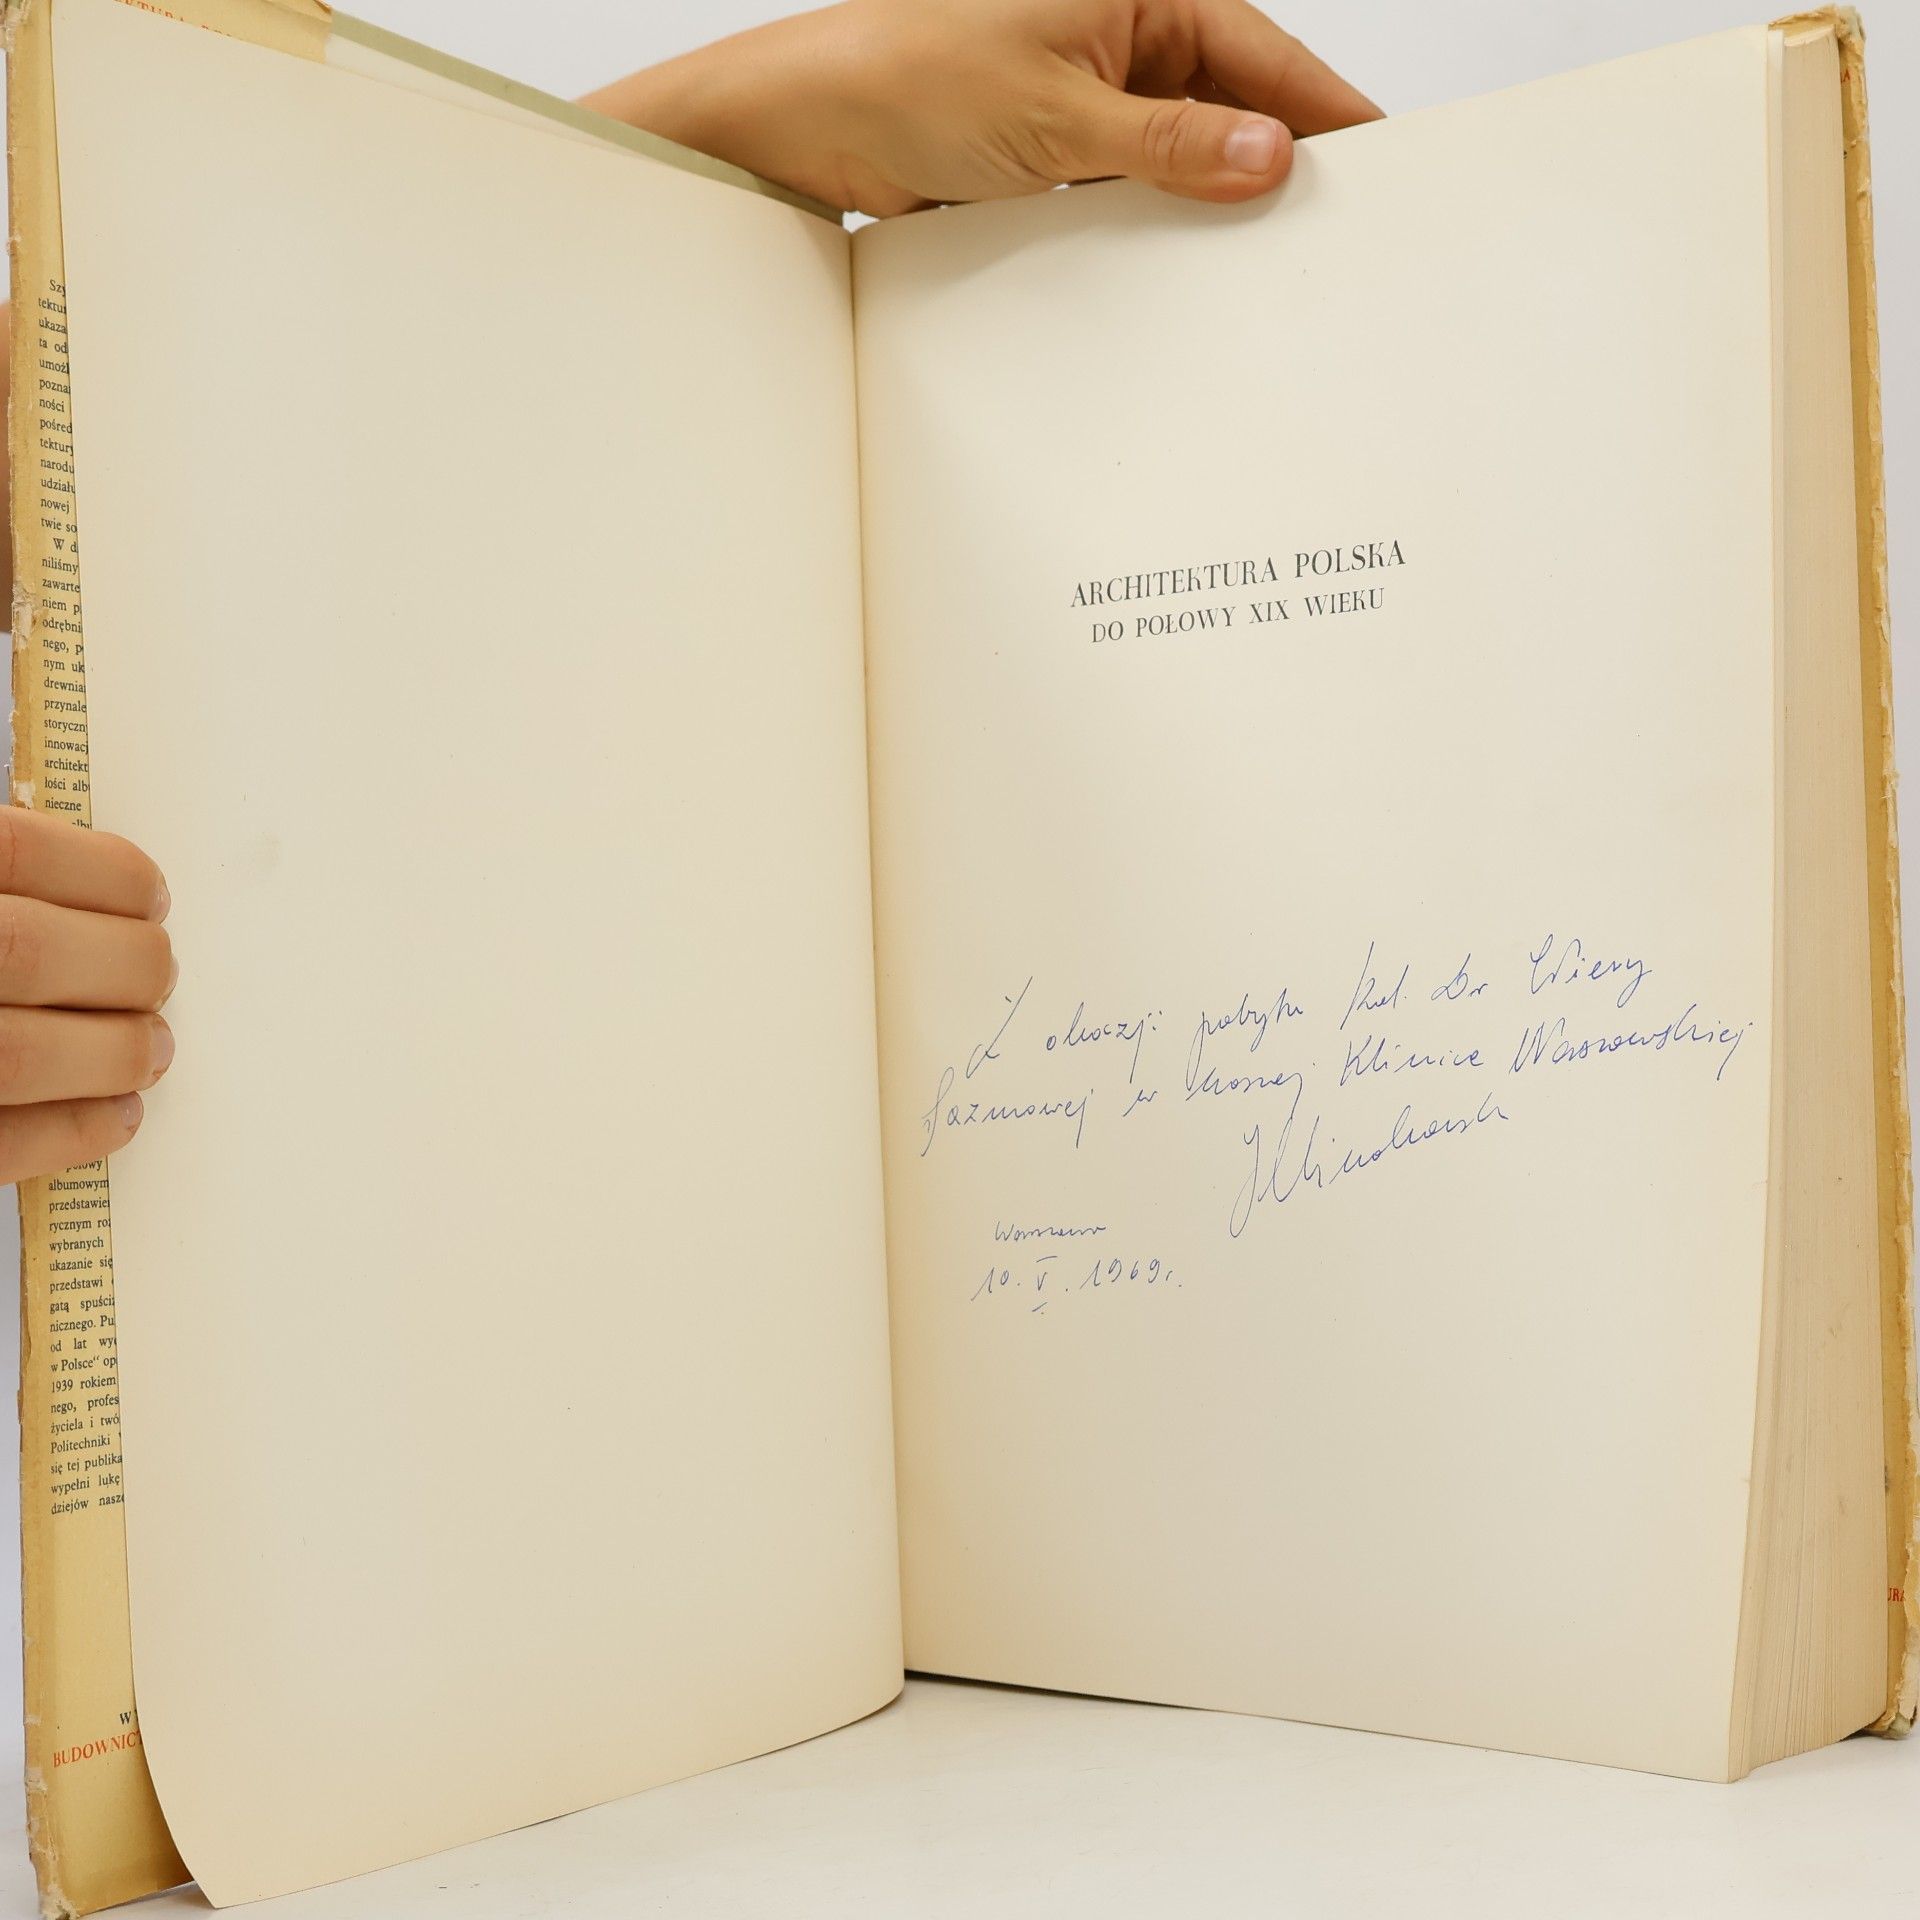 Szy
tektu
ukaza
ta od
umożl
pozna
ności
pośred
tektury
narodu
udziału
nowej
twie so
W d
niliśmy
zawarte
niem p
odrębni
nego, p
nym uk
drewnia
przynale
storyczn
innowacj
architekt
łości alb
nieczne
połowy
albumowym
przedstawie
rycznym ro
wybranych
ukazanie się
przedstawi
gatą spuści
nicznego. Pu
od lat wy
w Polsce" op
1939 rokiem
nego, profes
życiela i twó
Politechniki
się tej publika
wypełni lukę
dziejów nasz
W
BUDOWNICT
ARCHITEKTURA POLSKA
DO POŁOWY XIX WIEKU
Z okazji pobytu Kol. Dr Wiery
w naszej Klinice Warszawskiej
Warszawa
10. V. 1969 r.